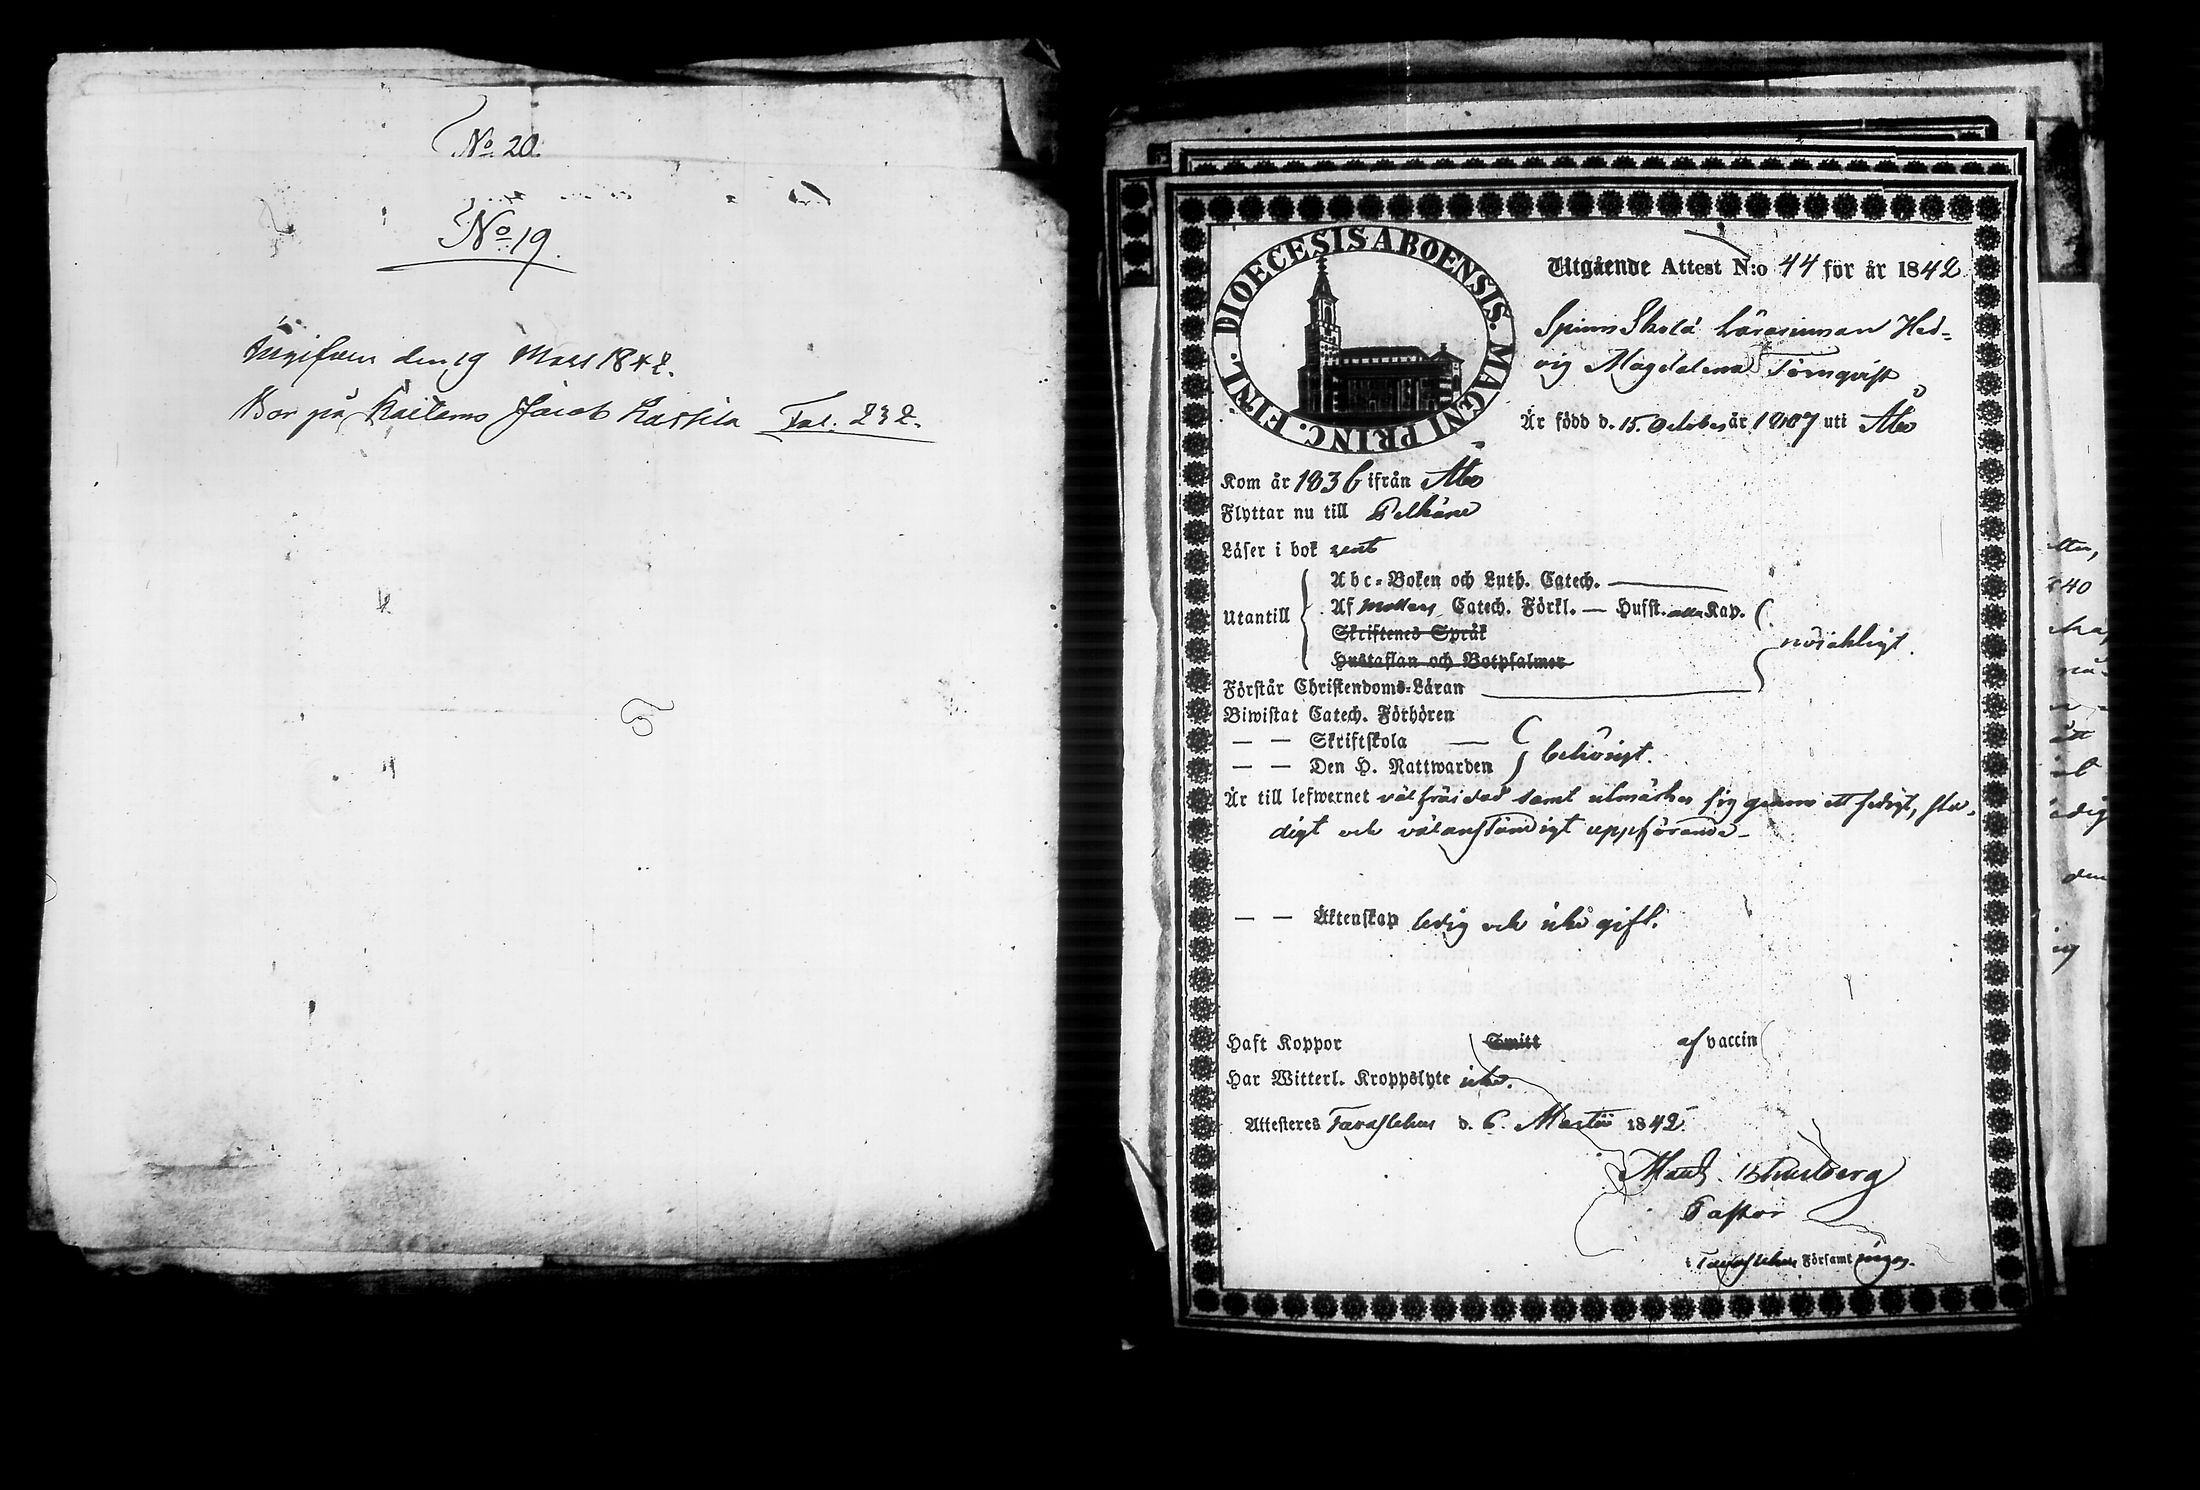 No 20.
No 19.
Ingifven den 19 Mars 1842.
Bor på Jacob Fol. 232.
DIOECESIS ABOENSIS. MAGNI PRINC. FINL.
Utgående Attest N:o 44 för år 1842
Spinn Skolä Lärarinnan Hed-
vig Magdalena Törnqvist
Är född d. 15. October år 1807 uti Åbo
Kom år 1836 ifrån Åbo
Flyttar nu till Pelkäne
Läser i bok rent
Utantill
Abc-Boken och Luth. Catech.
Af Möllers Catech. Förkl. — Husst. alla Kap.
Skriftenes Språk
Hustaflan och Botpsalmer
nöjaktigt.
Förstår Christendoms-Läran
Biwistat Catech. Förhören
— — Skriftskola —
— — Den H. Nattwarden
behörigt.
Är till lefwernet välfräjdad samt utmärker sig genom ett sedigt, sta-
digt och välanständigt uppförande.
— — Äktenskap ledig och icke gift.
Haft Koppor Smitt af vaccin
Har Witterl. Kroppslyte icke.
Attesteres Tavastehus d. 6. Martii 1842
Pastor
i Tavastehus Församlingar.